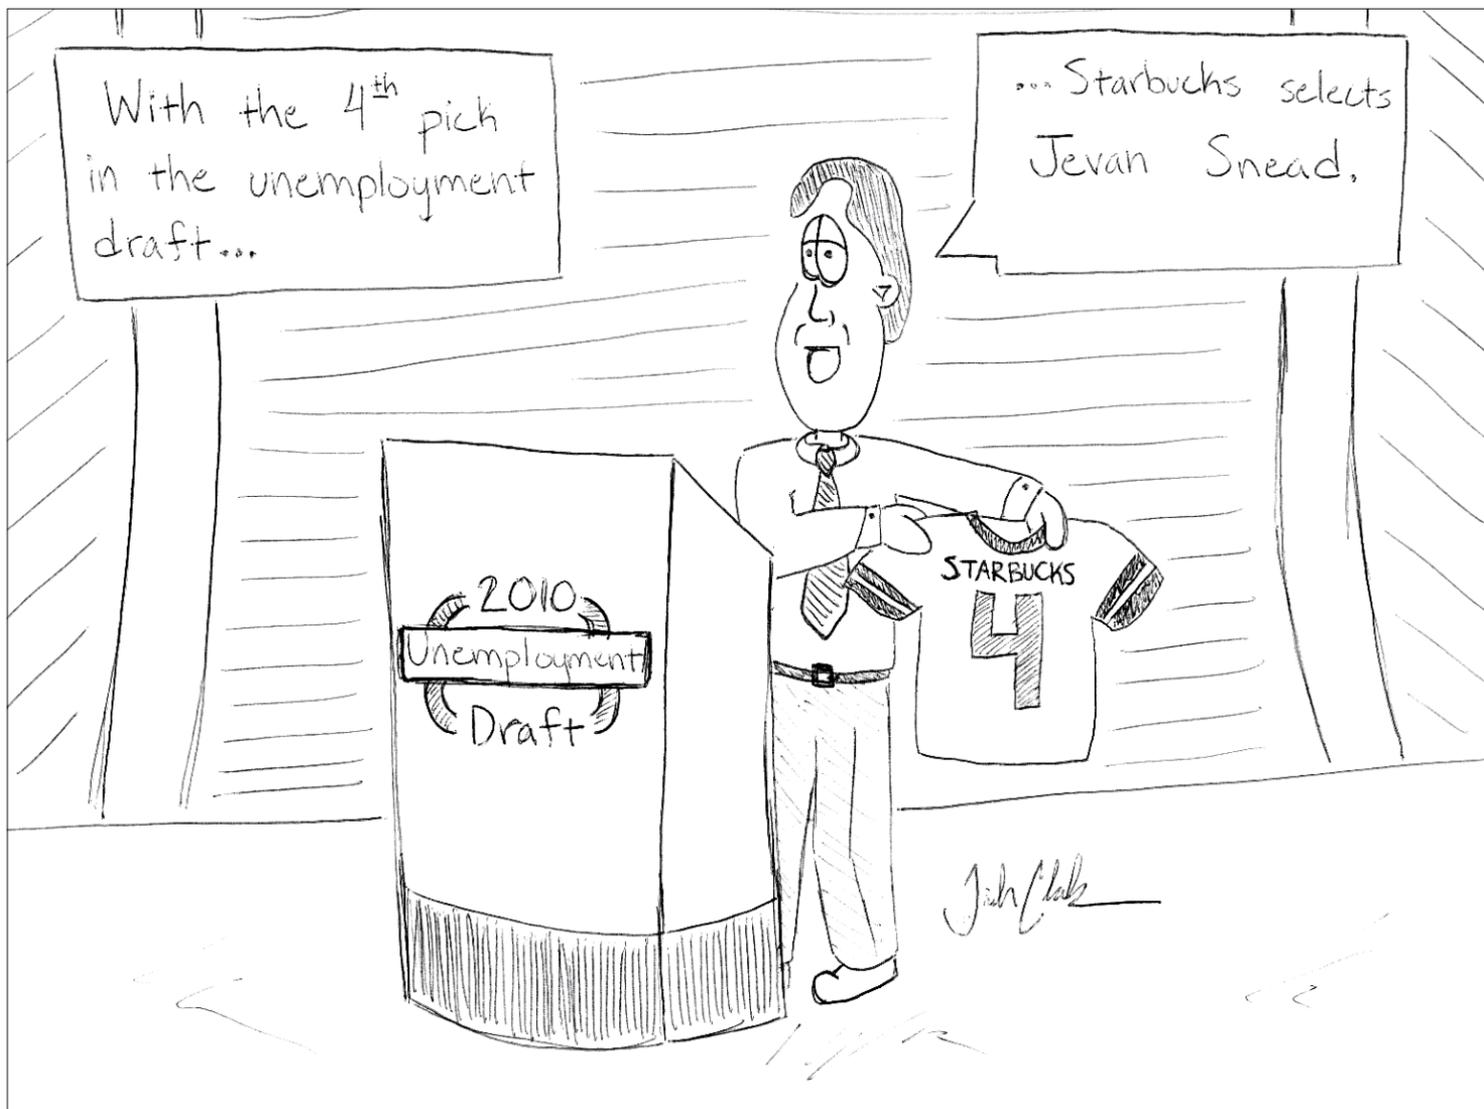 With the 4th pick
in the unemployment
draft...
...Starbucks selects
Jevan Snead.
2010
Unemployment
Draft
STARBUCKS
4